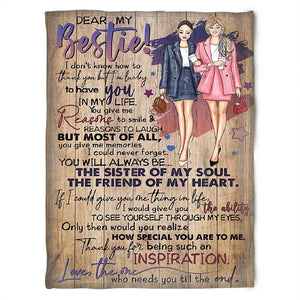 DEAR, MY
Bestie!
I don't know how to
thank you but I'm lucky
to have you
IN MY LIFE.
You give me
Reasons to smile &
REASONS TO LAUGH,
BUT MOST OF ALL,
you give me memories
I could never forget.
YOU WILL ALWAYS BE...
THE SISTER OF MY SOUL
THE FRIEND OF MY HEART.
If I could give you one thing in life,
I would give you the ability
TO SEE YOURSELF THROUGH MY EYES,
Only then would you realize
HOW SPECIAL YOU ARE TO ME.
Thank you for being such an
INSPIRATION.
Love, the one
who needs you till the end...